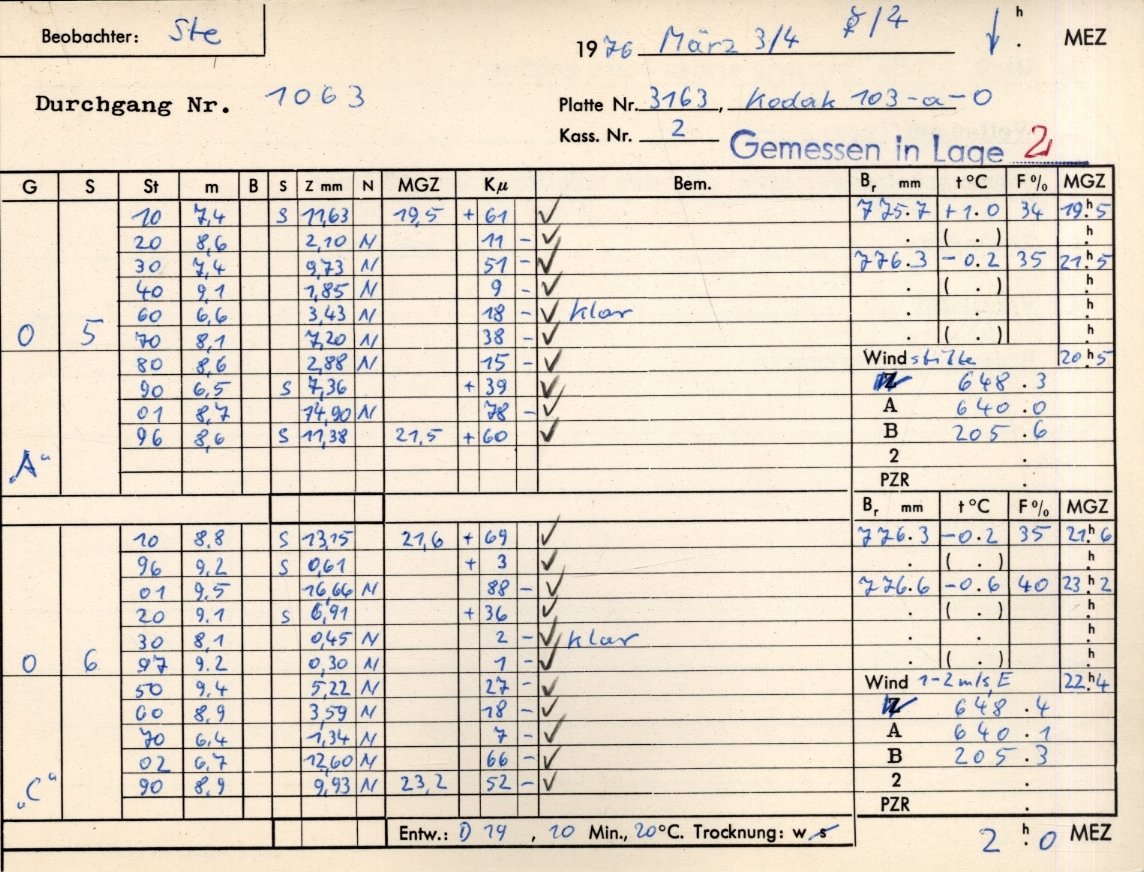 Beobachter: Ste
1976 März 3/4 ☿/4 ↓ h . MEZ
Durchgang Nr. 1063
Platte Nr. 3163, Kodak 103-a-O
Kass. Nr. 2
Gemessen in Lage 2
G S St m B S Z mm N MGZ Kμ Bem. Br mm t °C F % MGZ
10 7,4 S 11,63 19,5 + 61 ✓ 775.7 +1.0 34 19h.5
20 8,6 2,10 N 11 - ✓ . ( . ) h.
30 7,4 9,73 N 51 - ✓ 776.3 -0.2 35 21h.5
40 9,1 1,85 N 9 - ✓ . ( . ) h.
60 6,6 3,43 N 18 - ✓ klar . . h.
0 5 70 8,1 7,20 N 38 - ✓ . ( . ) h.
80 8,6 2,88 N 15 - ✓ Wind stille 20h.5
90 6,5 S 7,36 + 39 ✓ Z 648.3
01 8,7 14,90 N 78 - ✓ A 640.0
96 8,6 S 11,38 21,5 + 60 ✓ B 205.6
„A“ 2 .
PZR .
Br mm t °C F % MGZ
10 8.8 S 13,15 21,6 + 69 ✓ 776.3 -0.2 35 21h.6
96 9.2 S 0,61 + 3 ✓ . ( . ) h.
01 9,5 16,66 N 88 - ✓ 776.6 -0.6 40 23h.2
20 9.1 S 6,91 + 36 ✓ . ( . ) h.
30 8,1 0,45 N 2 - ✓ klar . . h.
0 6 97 9.2 0,30 N 1 - ✓ . ( . ) h.
50 9.4 5,22 N 27 - ✓ Wind 1-2 m/s, E 22h.4
60 8,9 3,59 N 18 - ✓ Z 648.4
70 6,4 1,34 N 7 - ✓ A 640.1
02 6,7 12,60 N 66 - ✓ B 205.3
„C“ 90 8,9 9,93 N 23,2 52 - ✓ 2 .
PZR .
Entw.: D 19, 10 Min., 20°C. Trocknung: w s
2 h. 0 MEZ